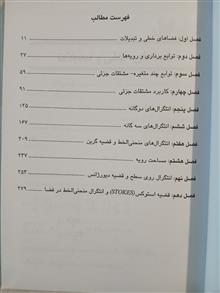 فهرست مطالب
فصل اول: فضاهای خطی و تبدیلات ۱۱
فصل دوم: توابع برداری و رویه‌ها ۲۷
فصل سوم: توابع چند متغیره- مشتقات جزئی ۵۹
فصل چهارم: کاربرد مشتقات جزئی ۹۱
فصل پنجم: انتگرال‌های دوگانه ۱۲۵
فصل ششم: انتگرال‌های سه گانه ۱۶۷
فصل هفتم: انتگرال‌های منحنی‌الخط و قضیه گرین ۲۰۹
فصل هشتم: مساحت رویه ۲۳۷
فصل نهم: انتگرال روی سطح و قضیه دیورژانس ۲۵۳
فصل دهم: قضیه استوکس (STOKES) و انتگرال منحنی‌الخط در فضا ۲۷۹